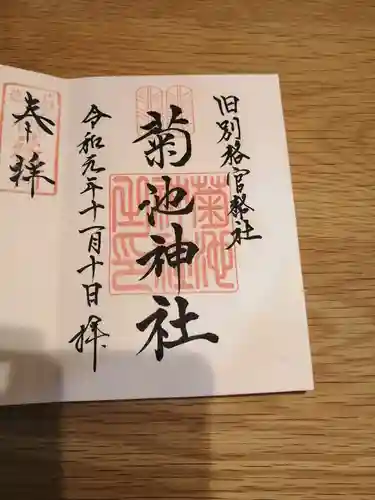 旧別格官幣社
菊池神社
令和元年十一月十日拝
奉拝